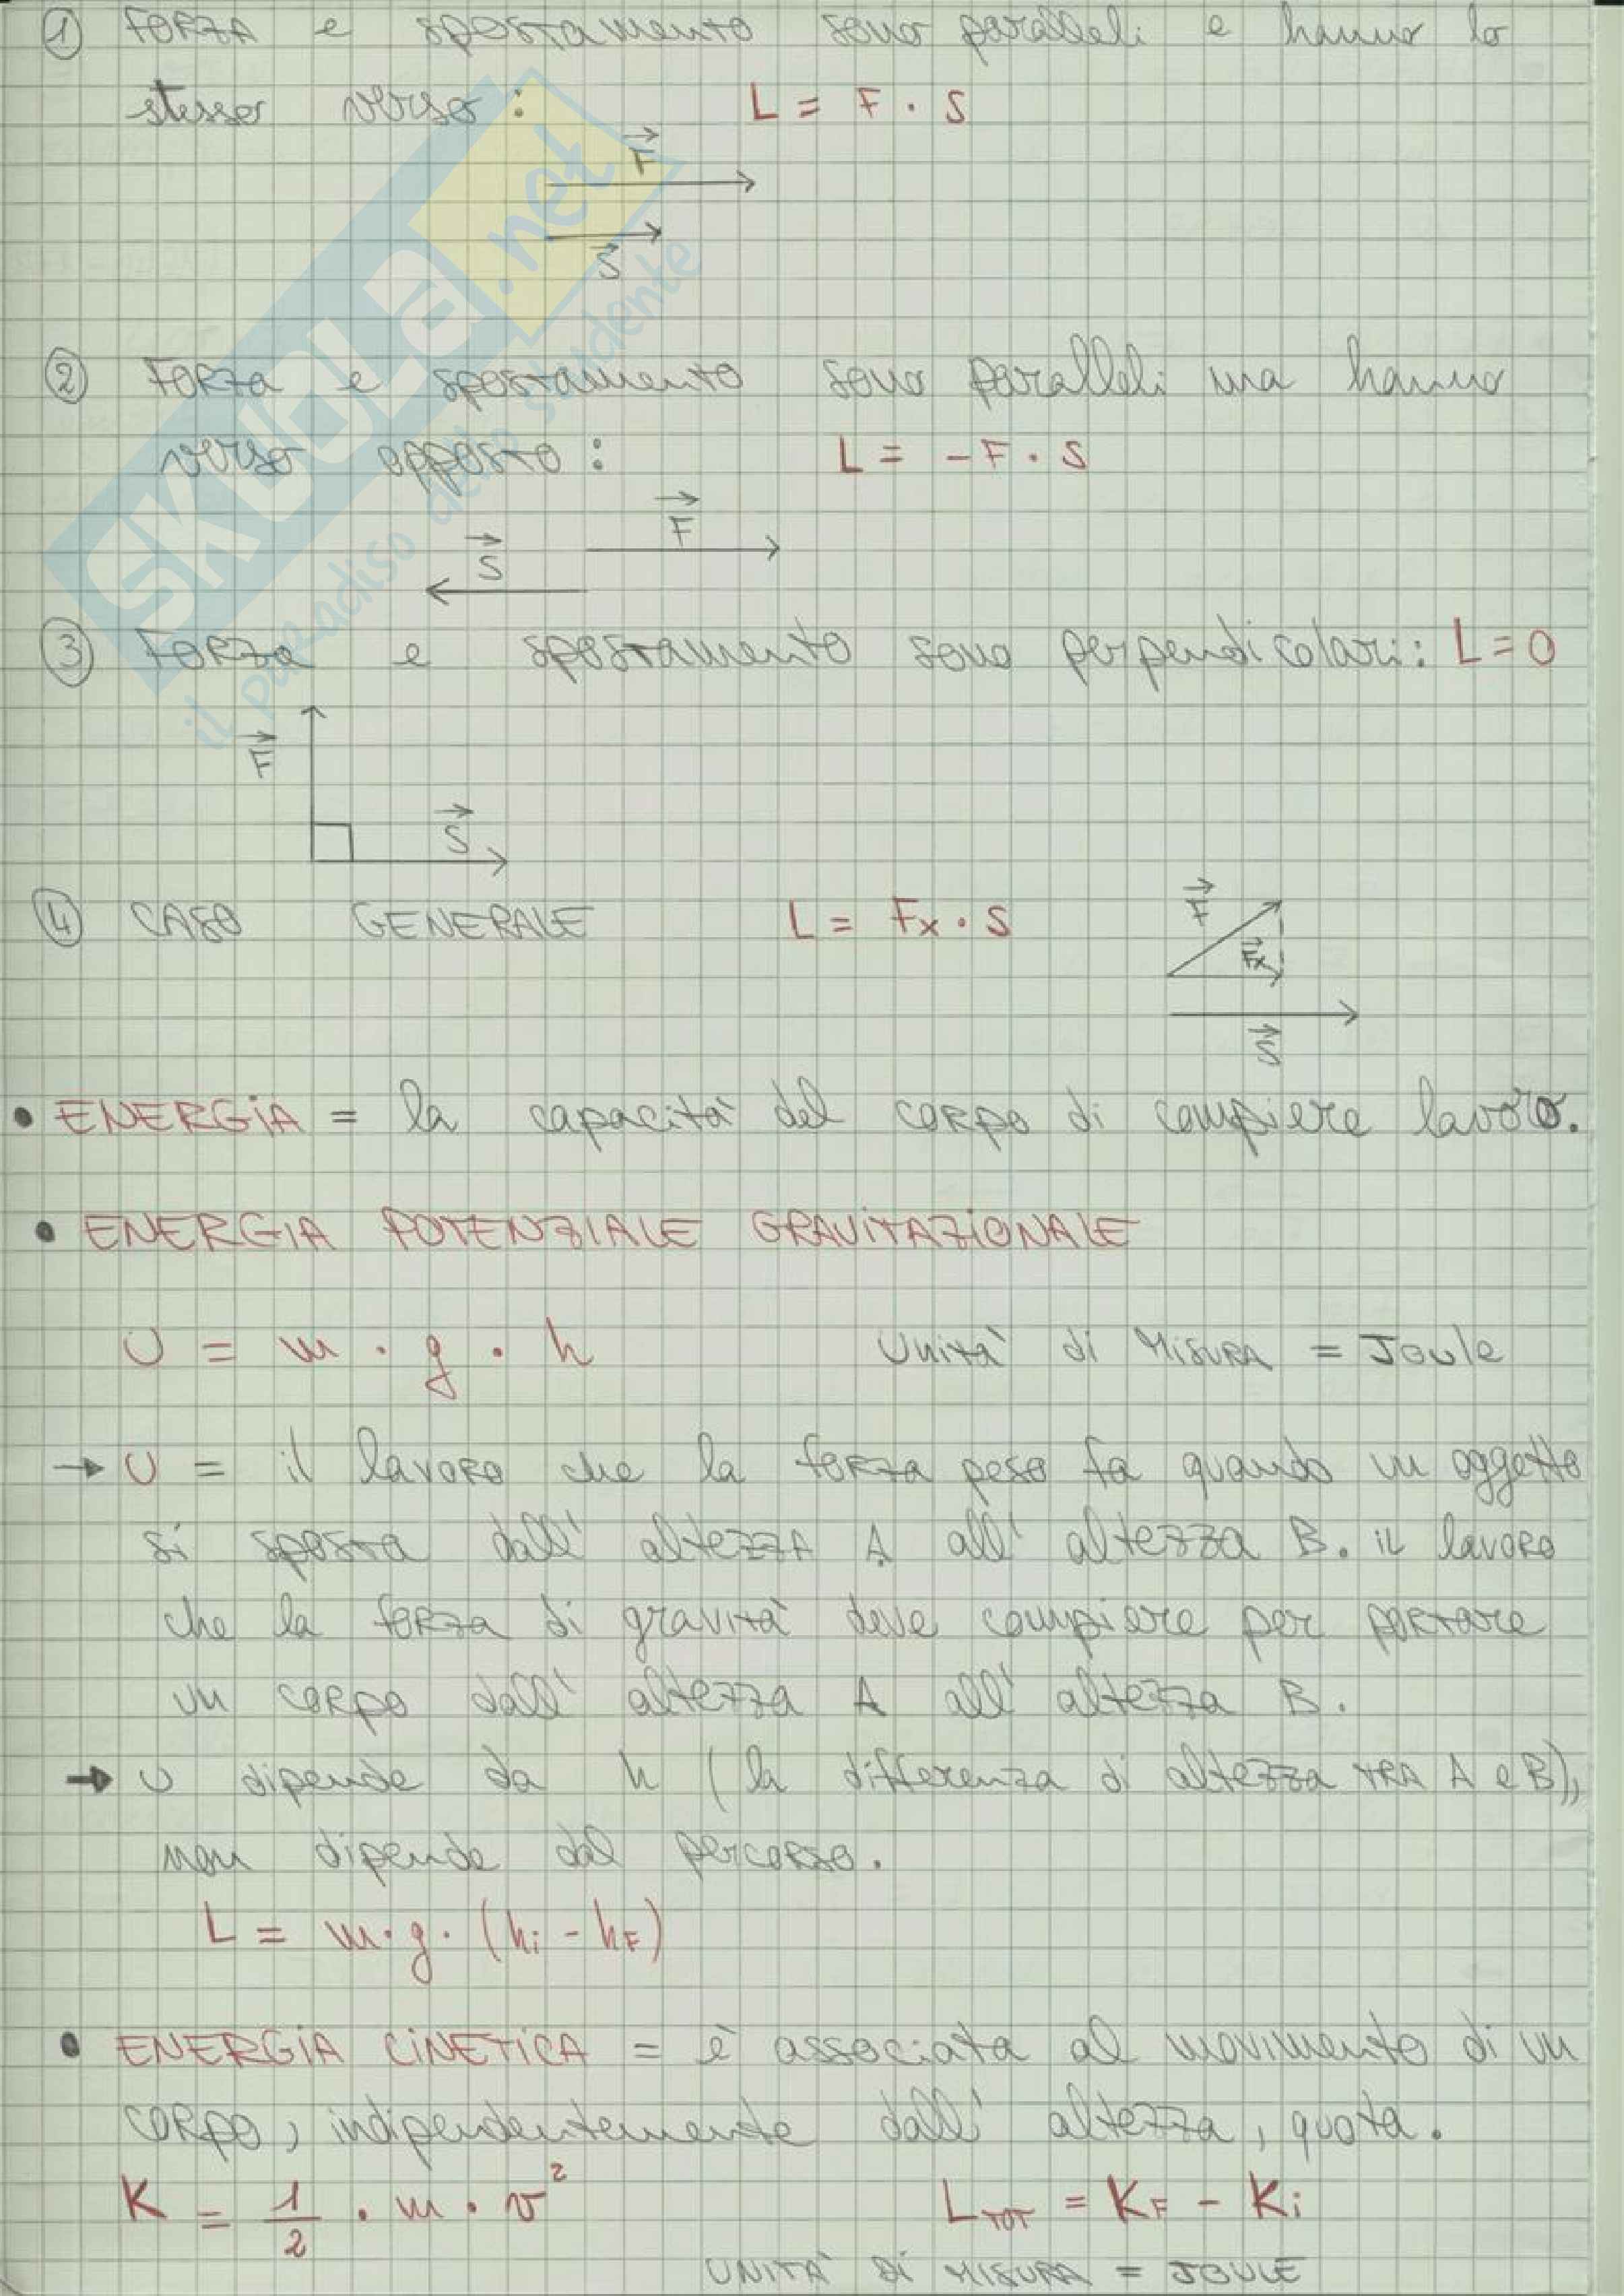 ① FORZA e spostamento sono paralleli e hanno lo
stesso verso : L = F · S
F
S
② FORZA e spostamento sono paralleli ma hanno
verso opposto : L = - F · S
F
S
③ FORZA e spostamento sono perpendicolari: L = 0
F
S
④ CASO GENERALE L = Fx · S
F
Fx
S
• ENERGIA = la capacità del corpo di compiere lavoro.
• ENERGIA POTENZIALE GRAVITAZIONALE
U = m · g · h Unità di MISURA = Joule
→ U = il lavoro che la forza peso fa quando un oggetto
si sposta dall' altezza A all' altezza B. il lavoro
che la forza di gravità deve compiere per portare
un corpo dall' altezza A all' altezza B.
→ U dipende da h (la differenza di altezza TRA A e B),
non dipende dal percorso.
L = m·g·(hi - hF)
• ENERGIA CINETICA = è associata al movimento di un
corpo, indipendentemente dall' altezza, quota.
K = 1/2 · m · v² LTOT = KF - Ki
UNITÀ DI MISURA = JOULE
SKUOLA.net
il paradiso dello studente